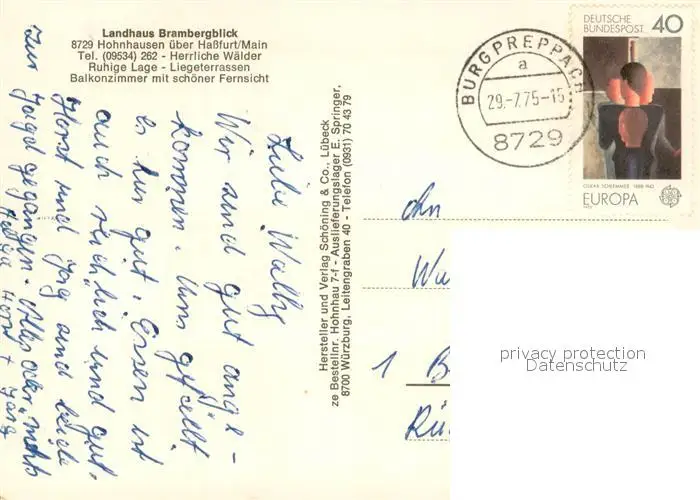 Landhaus Brambergblick
8729 Hohnhausen über Haßfurt/Main
Tel. (09534) 262 - Herrliche Wälder
Ruhige Lage - Liegeterrassen
Balkonzimmer mit schöner Fernsicht
Liebe Wally
Wir sind gut ange-
kommen. Uns gefällt
es hier gut. Essen ist
auch reichlich und gut.
Horst und Jörg sind beide
zur Jagd gegangen. Alles oder nichts
Horst + Jörg
Hersteller und Verlag Schöning & Co., Lübeck
ze Bestellnr. Hohnhau 7-f - Auslieferungslager E. Springer,
8700 Würzburg, Leitengraben 40 - Telefon (0931) 70 43 79
BURGPREPPACH
a
29.-7.75-15
8729
DEUTSCHE
BUNDESPOST 40
OSKAR SCHLEMMER 1888-1943
EUROPA
CEPT
An
Wa
1 B
Rü
privacy protection
Datenschutz